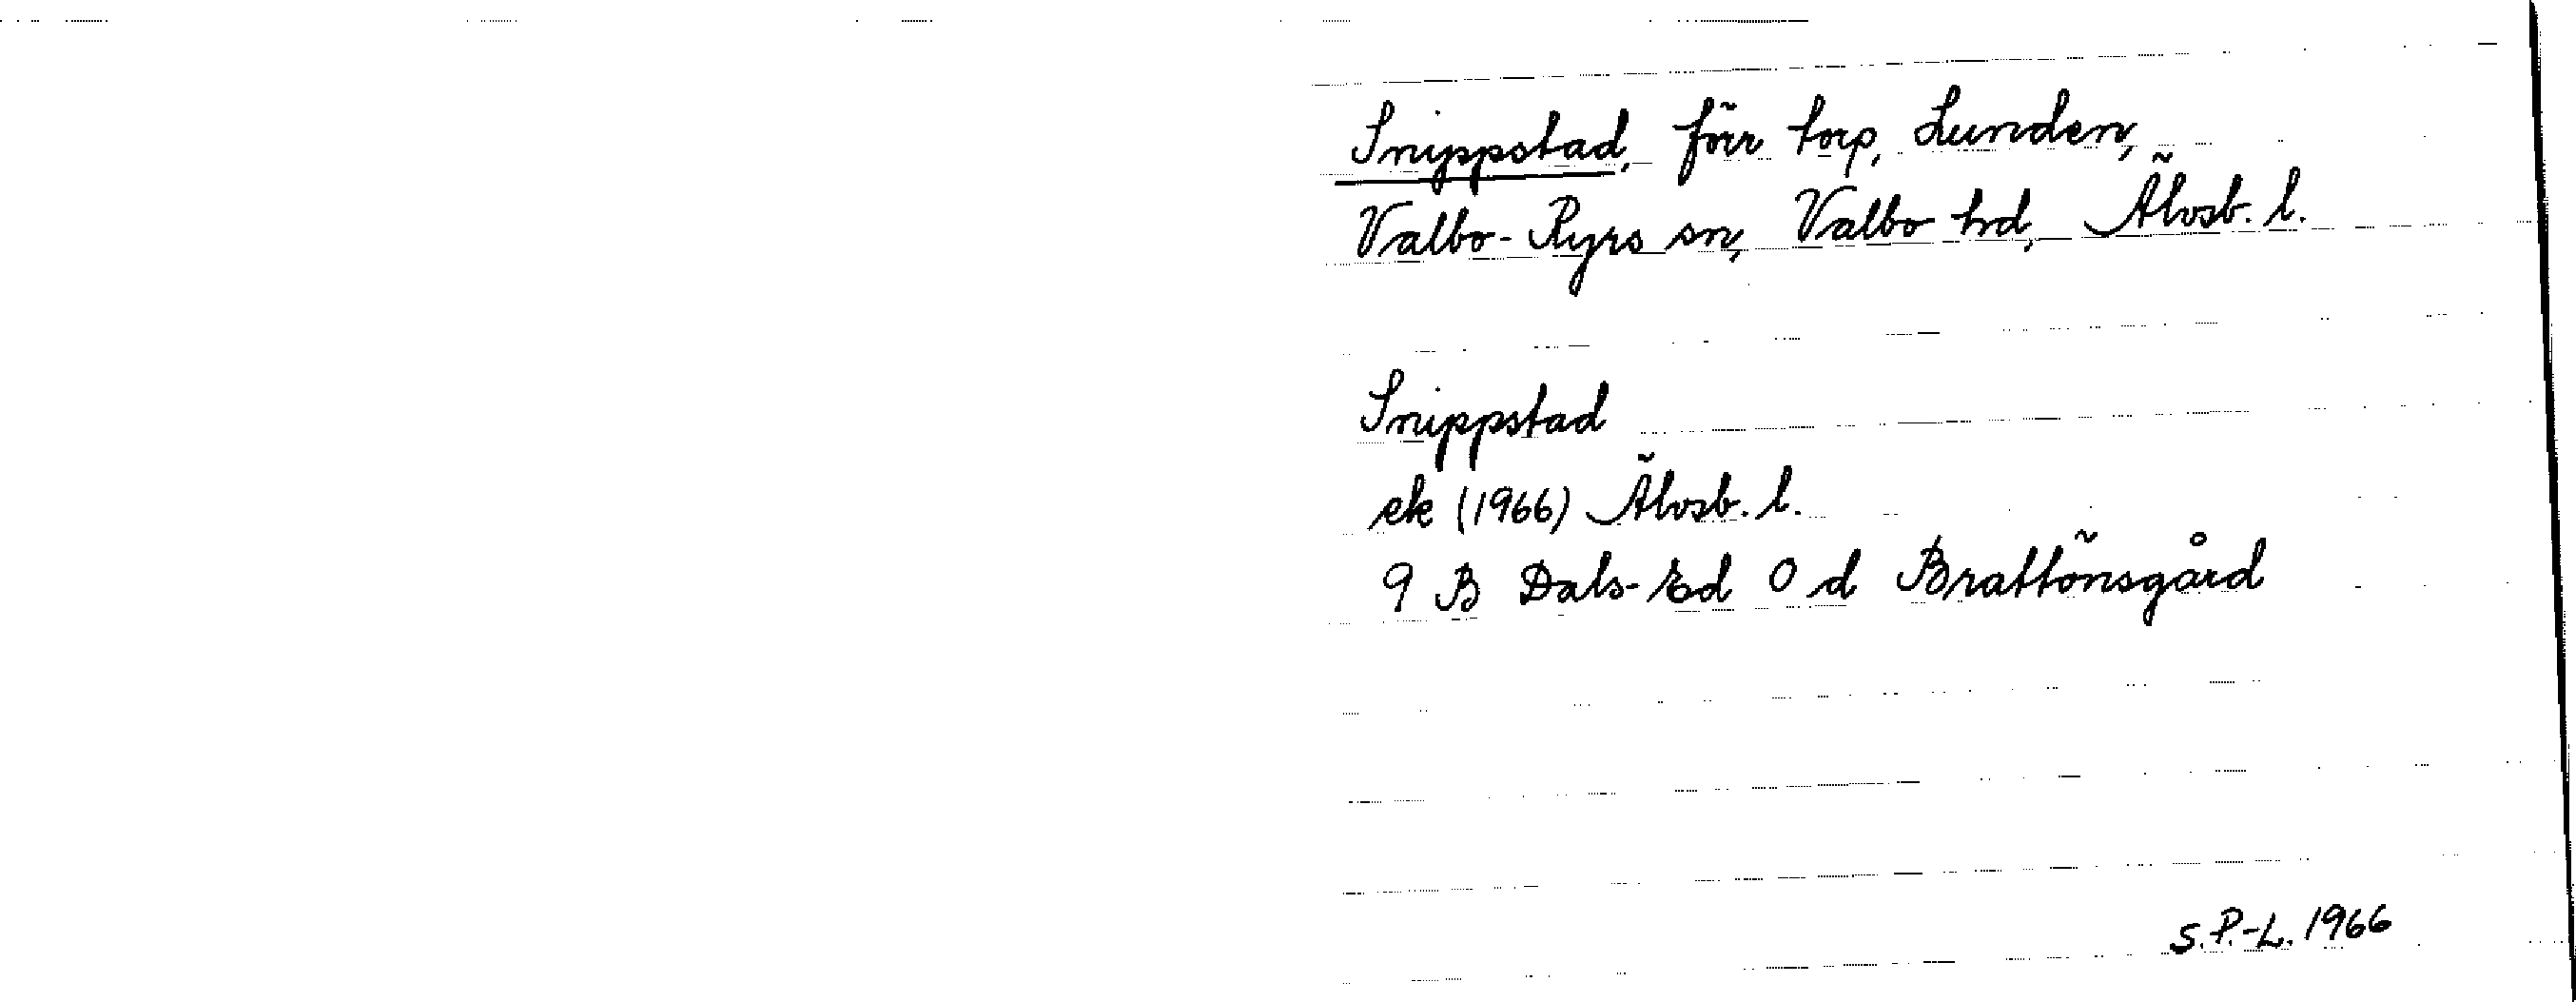 Snippstad, förr torp, Lunden,
Valbo-Ryrs sn, Valbo hd, Älvsb. l.
Snippstad
ek (1966) Älvsb. l.
9 B Dals-Ed 0 d Brattönsgård
S.P.-L. 1966